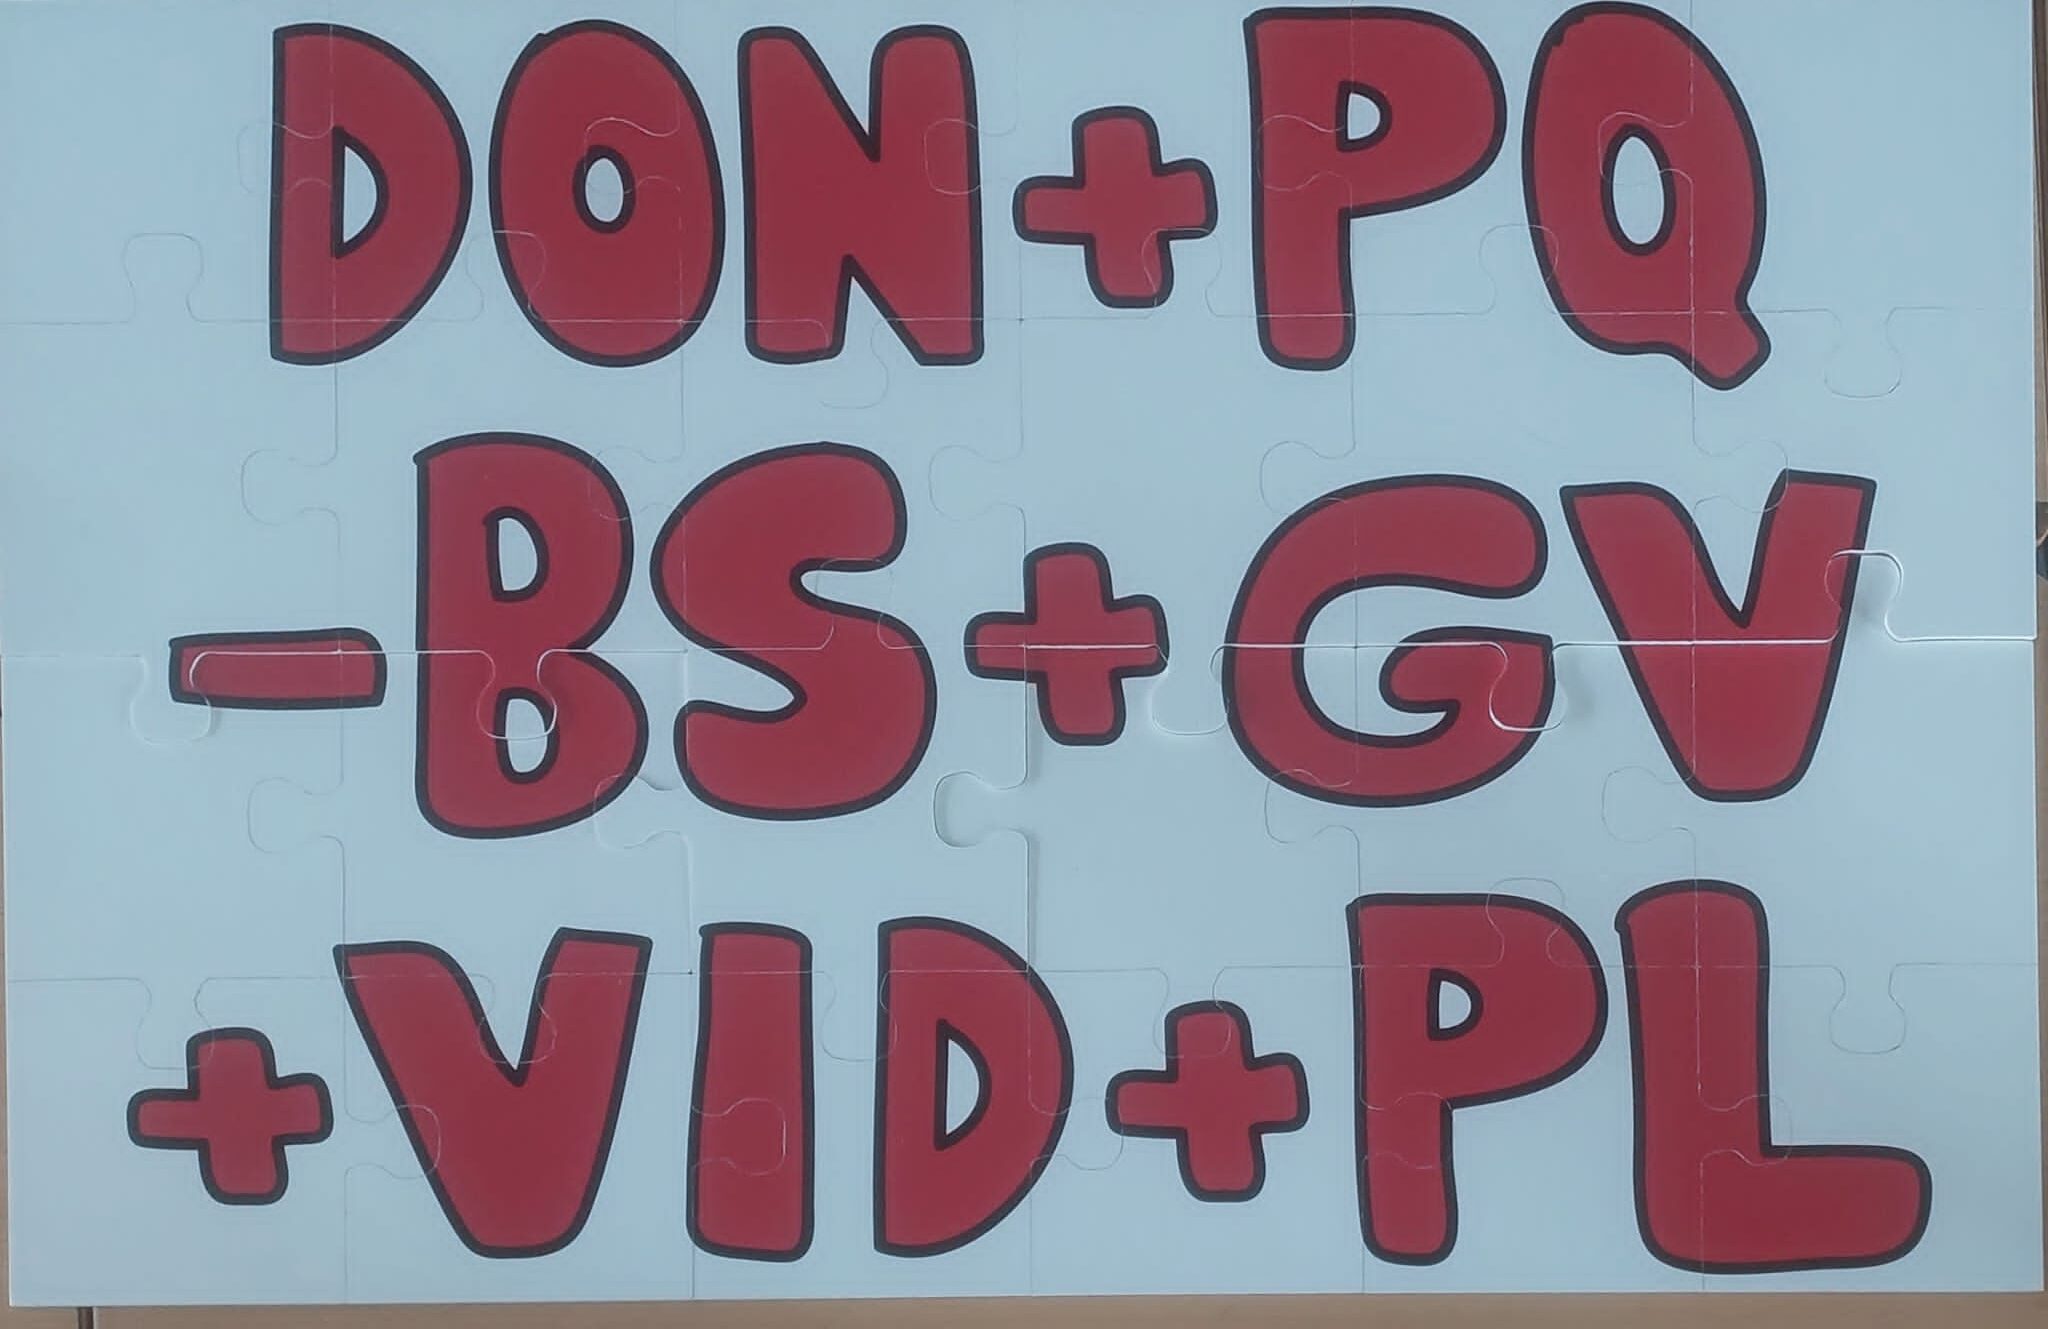 DON+PQ
-BS+GV
+VID+PL